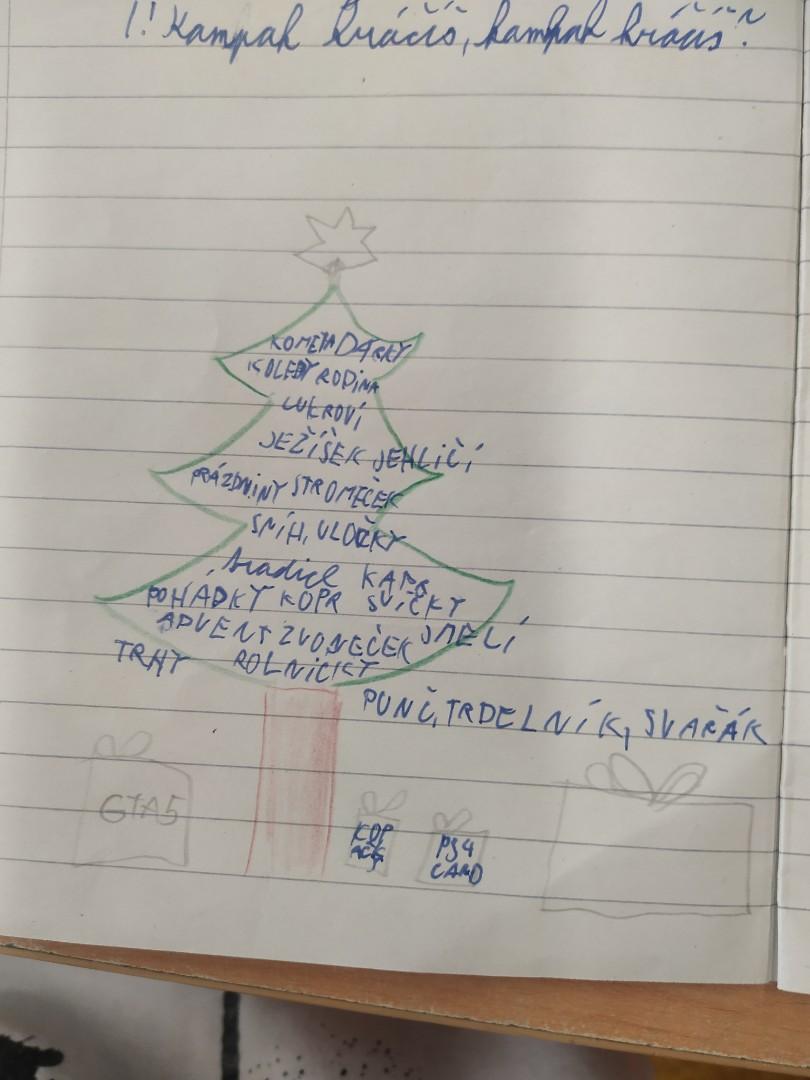 Kampak kráčíš, kampak kráčíš?
KOMETA DÁRKY
KOLEDY RODINA
CUKROVÍ
JEŽÍŠEK JEHLIČÍ
PRÁZDNINY STROMEČEK
SNÍH, VLOČKY
tradice KAPR
POHÁDKY KOPR SVÍČKY
ADVENT ZVONEČEK JMELÍ
TRHY ROLNIČKY
PUNČ, TRDELNÍK, SVAŘÁK
GTA5
KOP
AČKY
PS4
CARD